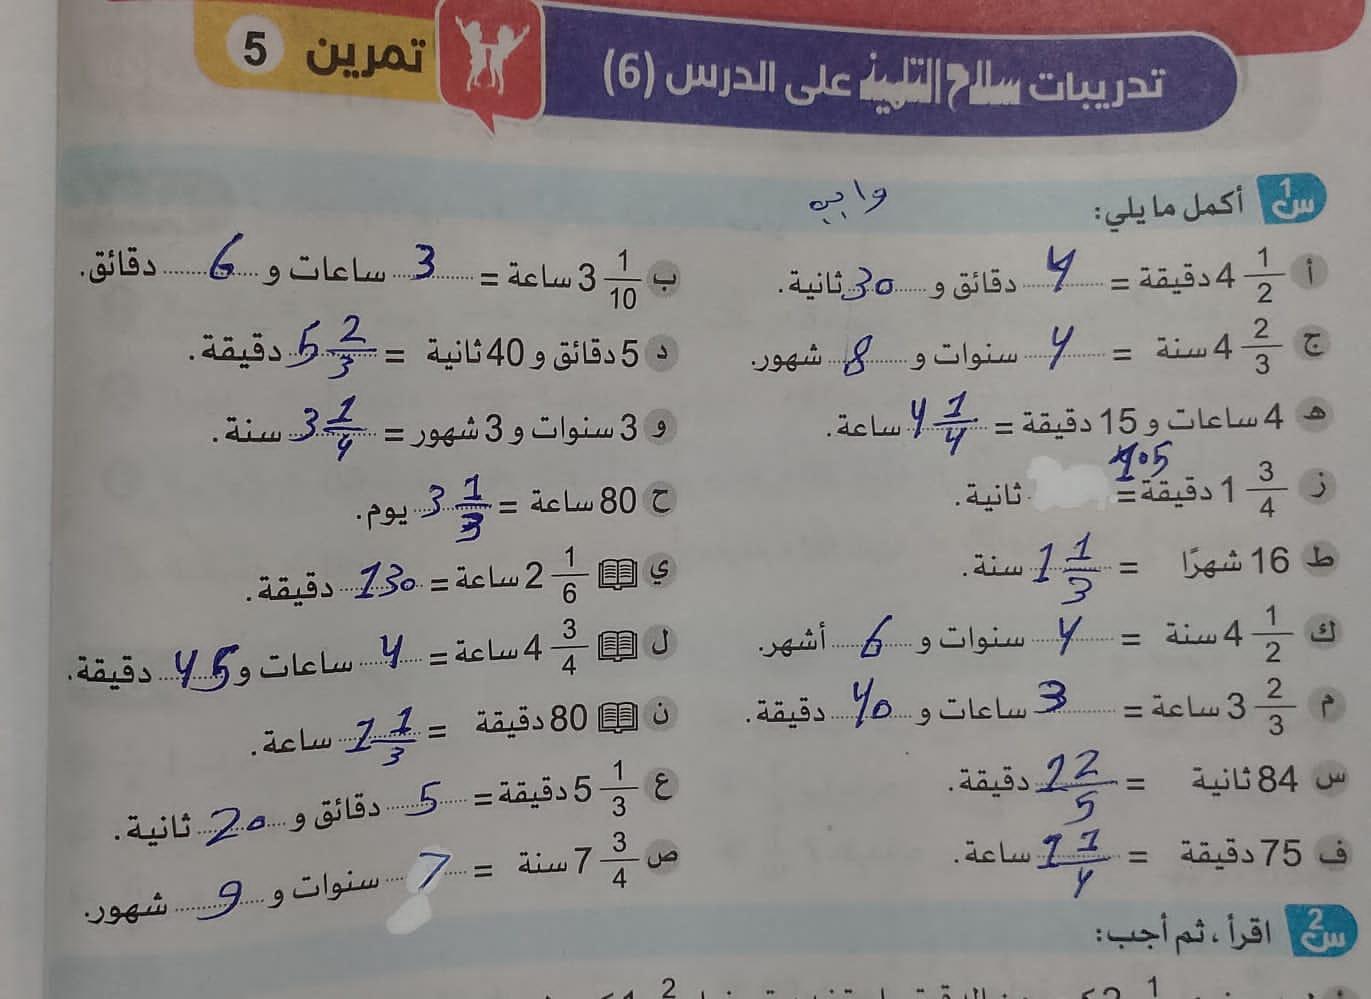 تدريبات سلاح التلميذ على الدرس (6) تمرين 5
س1 أكمل ما يلي: واجب
أ 4 1/2 دقيقة = 4 دقائق و 30 ثانية.
ب 3 1/10 ساعة = 3 ساعات و 6 دقائق.
ج 4 2/3 سنة = 4 سنوات و 8 شهور.
د 5 دقائق و 40 ثانية = 5 2/3 دقيقة.
هـ 4 ساعات و 15 دقيقة = 4 1/4 ساعة.
و 3 سنوات و 3 شهور = 3 1/4 سنة.
ز 1 3/4 دقيقة = 105 ثانية.
ح 80 ساعة = 3 1/3 يوم.
ط 16 شهرًا = 1 1/3 سنة.
ي 2 1/6 ساعة = 130 دقيقة.
ك 4 1/2 سنة = 4 سنوات و 6 أشهر.
ل 4 3/4 ساعة = 4 ساعات و 45 دقيقة.
م 3 2/3 ساعة = 3 ساعات و 40 دقيقة.
ن 80 دقيقة = 1 1/3 ساعة.
س 84 ثانية = 1 2/5 دقيقة.
ع 5 1/3 دقيقة = 5 دقائق و 20 ثانية.
ف 75 دقيقة = 1 1/4 ساعة.
ص 7 3/4 سنة = 7 سنوات و 9 شهور.
س2 اقرأ، ثم أجب: